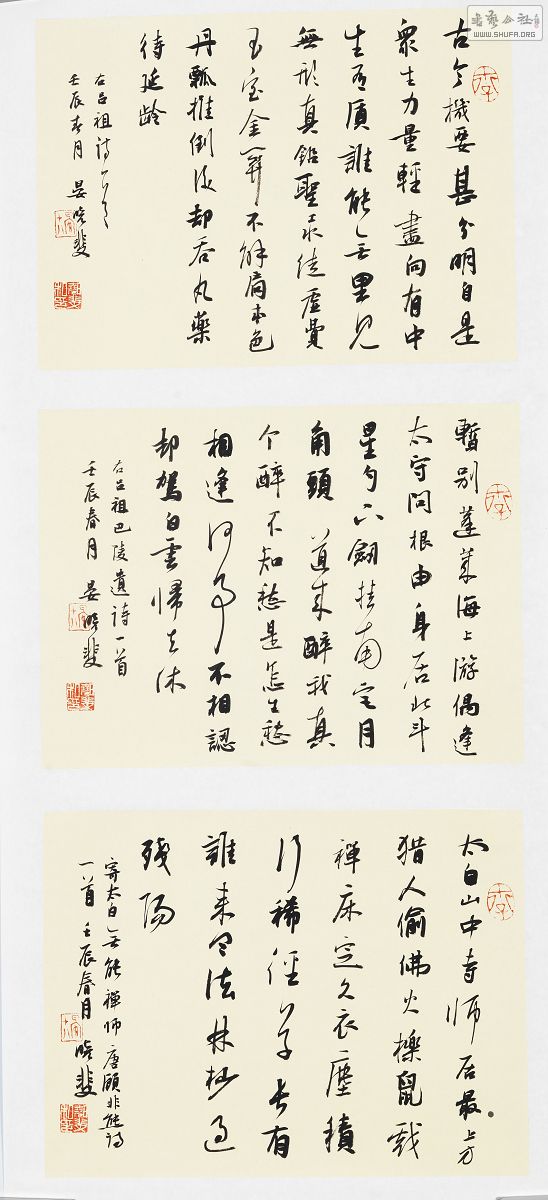 書藝公社
WWW.SHUFA.ORG
古今機要甚分明自是
衆生力量輕盡向有中
生有質誰能無里見
無形真鉛聖汞徒虛費
玉室金關不解扃本色
丹瓢推倒後却吞丸藥
待延齡
右呂祖詩一首
壬辰春月 晏曉斐
暫別蓬萊海上游偶逢
太守問根由身居北斗
星勺下劍挂南宮月
角頭道來醉我真
个醉不知愁是怎生愁
相逢何事不相認
却駕白雲歸去休
右呂祖巴陵遺詩一首
壬辰春月 晏曉斐
太白山中寺師居最上方
猎人偷佛火櫟鼠戲
禪床定久衣塵積
行稀徑草長有
誰来問法林杪過
殘陽
寄太白無能禪師唐顧非熊詩
一首 壬辰春月 曉斐